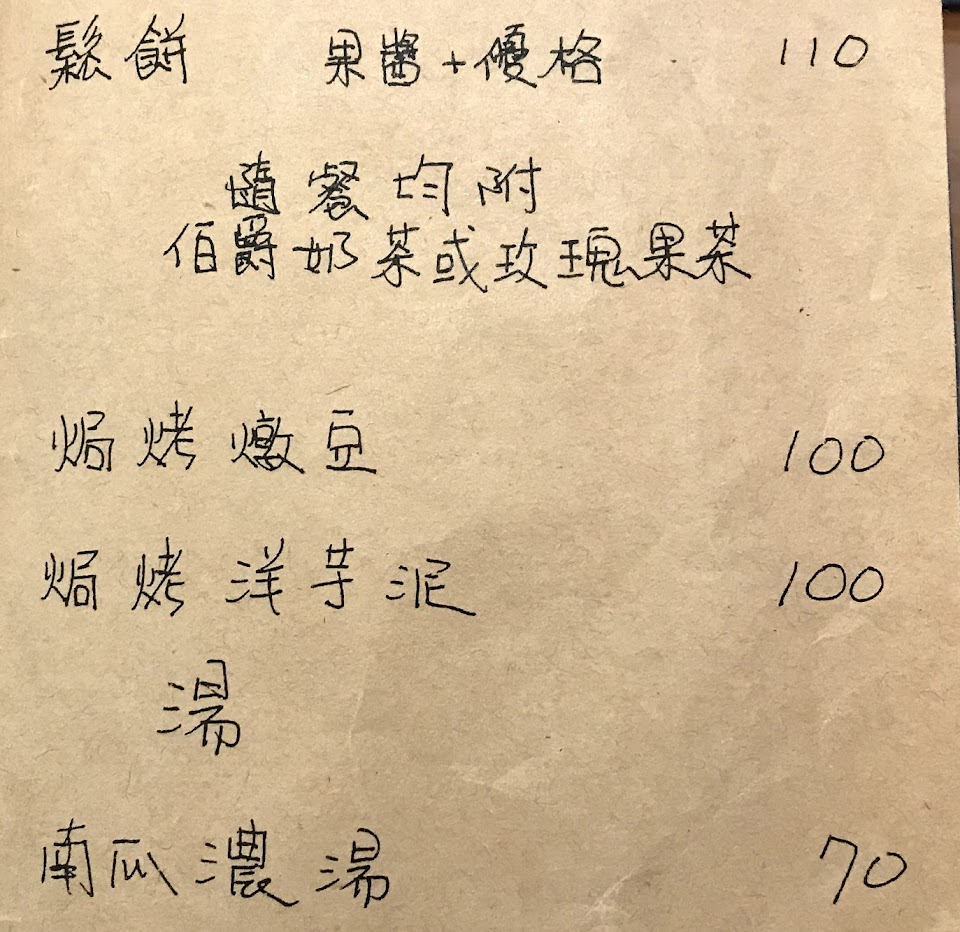 鬆餅 果醬+優格 110
隨餐均附
伯爵奶茶或玫瑰果茶
焗烤燉豆 100
焗烤洋芋泥 100
湯
南瓜濃湯 70